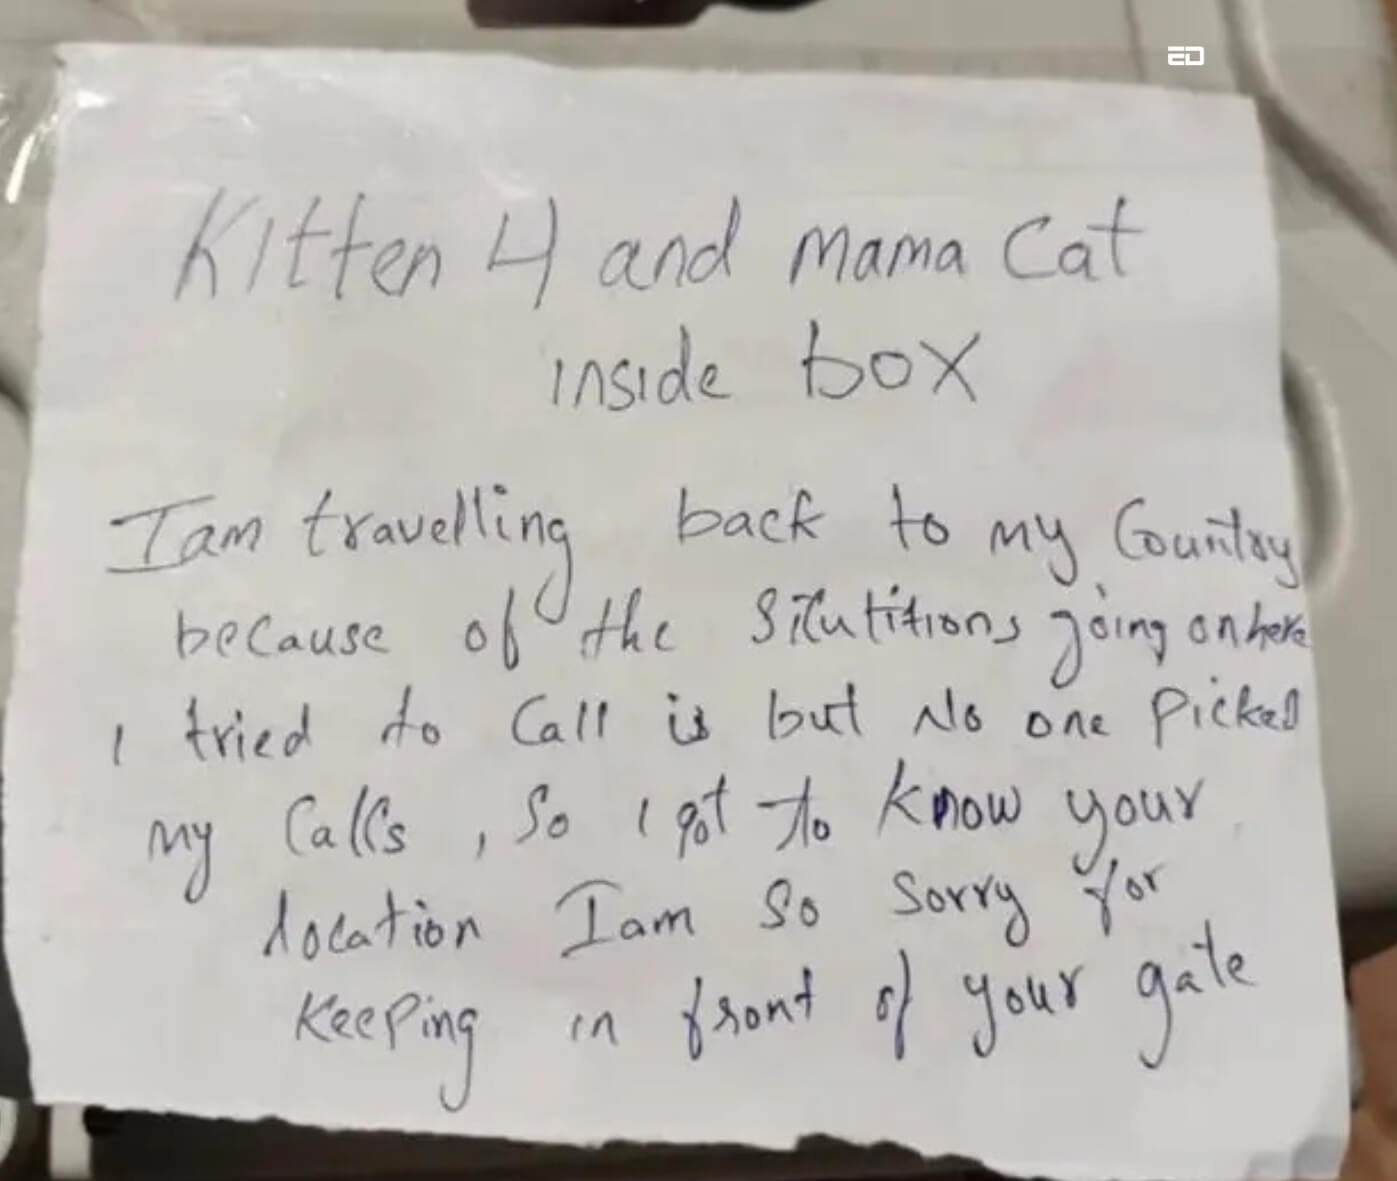 ED
Kitten 4 and mama Cat
inside box
I am travelling back to my Country
because of the Situtitions going on here
I tried to Call is but No one Picked
my Calls, So I got to know your
location I am So Sorry for
Keeping in front of your gate